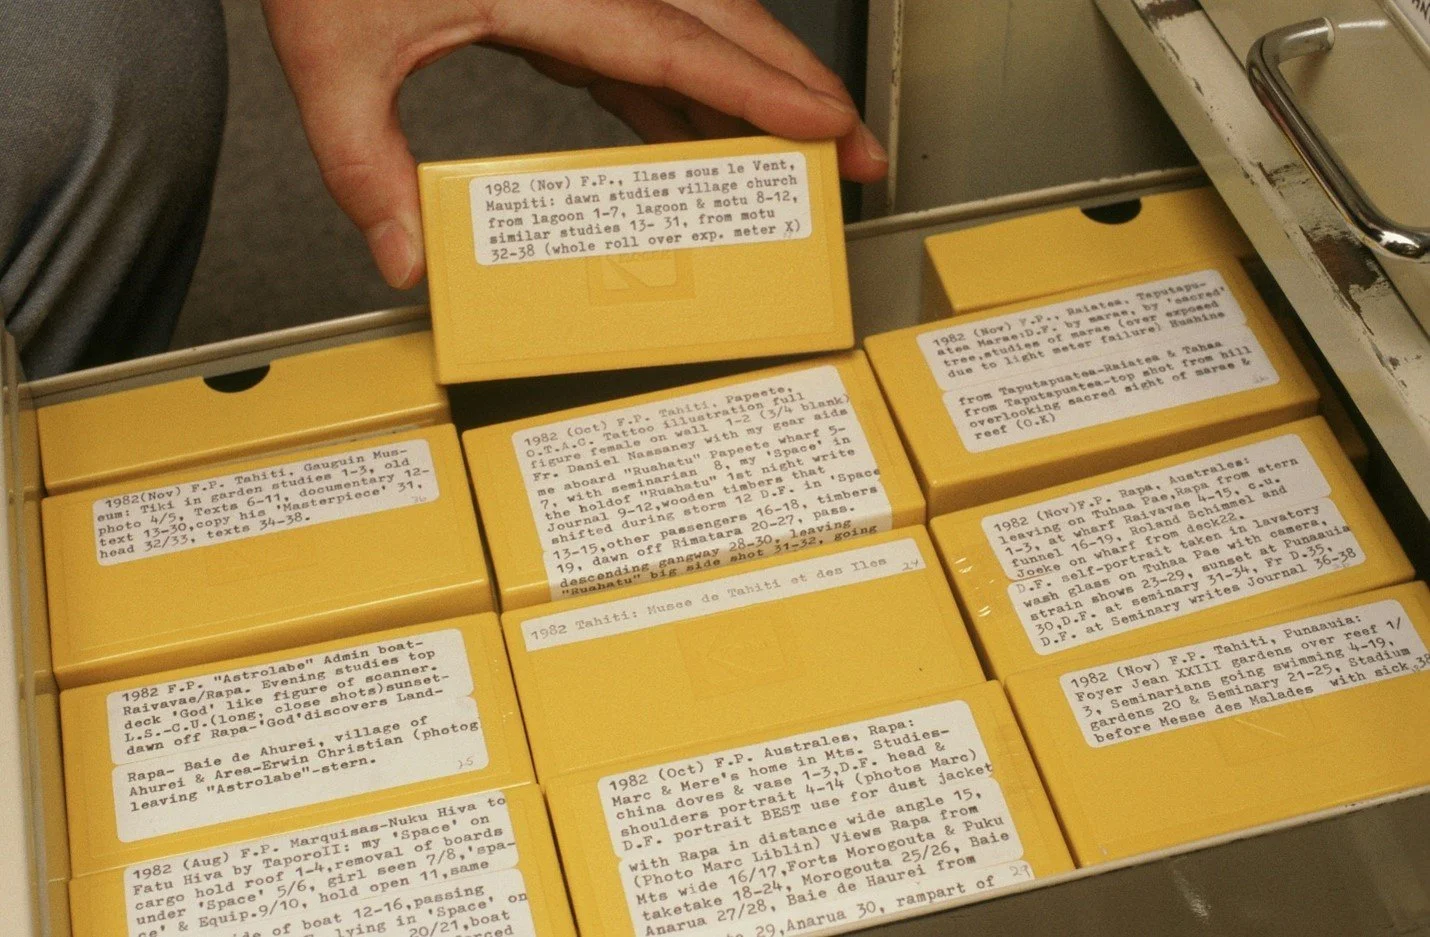 1982 (Nov) F.P., Ilses sous le Vent,
Maupiti: dawn studies village church
from lagoon 1-7, lagoon & motu 8-12,
similar studies 13- 31, from motu
32-38 (whole roll over exp. meter X)
1982(Nov) F.P. Tahiti, Gauguin Mus-
eum: Tiki in garden studies 1-3, old
photo 4/5, Texts 6-11, documentary 12-
text 13-30,copy his 'Masterpiece' 31,
head 32/33, texts 34-38.
26
1982 F.P. "Astrolabe" Admin boat-
Raivavae/Rapa. Evening studies top
deck 'God' like figure of scanner.
L.S.-C.U.(long, close shots)sunset-
dawn off Rapa-'God'discovers Land-
Rapa- Baie de Ahurei, village of
Ahurei & Area-Erwin Christian (photog
leaving "Astrolabe"-stern.
25
1982 (Aug) F.P. Marquisas-Nuku Hiva to
Fatu Hiva by TaporoII: my 'Space' on
cargo hold roof 1-4,removal of boards
under 'Space' 5/6, girl seen 7/8,'spa-
ce' & Equip.9/10, hold open 11,same
de of boat 12-16,passing
lying in 'Space' on
20/21,boat
1982 (Oct) F.P. Tahiti, Papeete,
O.T.A.C. Tattoo illustration full
figure female on wall 1-2 (3/4 blank)
Fr. Daniel Nassaney with my gear aids
me aboard "Ruahatu" Papeete wharf 5-
7, with seminarian 8, my 'Space' in
the holdof "Ruahatu" 1st night write
Journal 9-12,wooden timbers that
shifted during storm 12 D.F. in 'Space
13-15,other passengers 16-18, timbers
19, dawn off Rimatara 20-27, pass.
descending gangway 28-30, leaving
"Ruahatu" big side shot 31-32, going
1982 Tahiti: Musee de Tahiti et des Iles
24
1982 (Oct) F.P. Australes, Rapa:
Marc & Mere's home in Mts. Studies-
china doves & vase 1-3,D.F. head &
shoulders portrait 4-14 (photos Marc)
D.F. portrait BEST use for dust jacket
with Rapa in distance wide angle 15,
(Photo Marc Liblin) Views Rapa from
Mts wide 16/17,Forts Morogouta & Puku
taketake 18-24, Morogouta 25/26, Baie
Anarua 27/28, Baie de Haurei from
29,Anarua 30, rampart of
1982 (Nov) F.P., Raiatea, Taputapu-
atea Marae:D.F. by marae, by 'sacred'
tree,studies of marae (over exposed
due to light meter failure) Huahine
from Taputapuatea-Raiatea & Tahaa
from Taputapuatea-top shot from hill
overlooking sacred sight of marae &
reef (O.K)
1982 (Nov)F.P. Rapa, Australes:
leaving on Tuhaa Pae,Rapa from stern
1-3, at wharf Raivavae 4-15, c.u.
funnel 16-19, Roland Schimmel and
Joeke on wharf from deck22.
D.F. self-portrait taken in lavatory
wash glass on Tuhaa Pae with camera,
strain shows 23-29, sunset at Punaauia
30,D.F. at seminary 31-34, Fr D.35,
D.F. at Seminary writes Journal 36-38
1982 (Nov) F.P. Tahiti, Punaauia:
Foyer Jean XXIII gardens over reef 1/
3, Seminarians going swimming 4-19,
gardens 20 & Seminary 21-25, Stadium
before Messe des Malades with sick